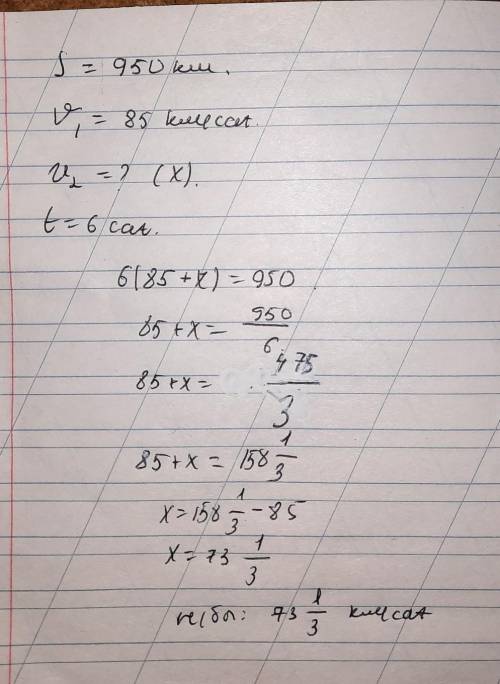 S = 950 км.
V₁ = 85 км/сағ.
V₂ = ? (x).
t = 6 сағ.
6(85 + x) = 950
85 + x = 950/6
85 + x = 475/3
85 + x = 158 1/3
x = 158 1/3 - 85
x = 73 1/3
73 1/3 км/сағ